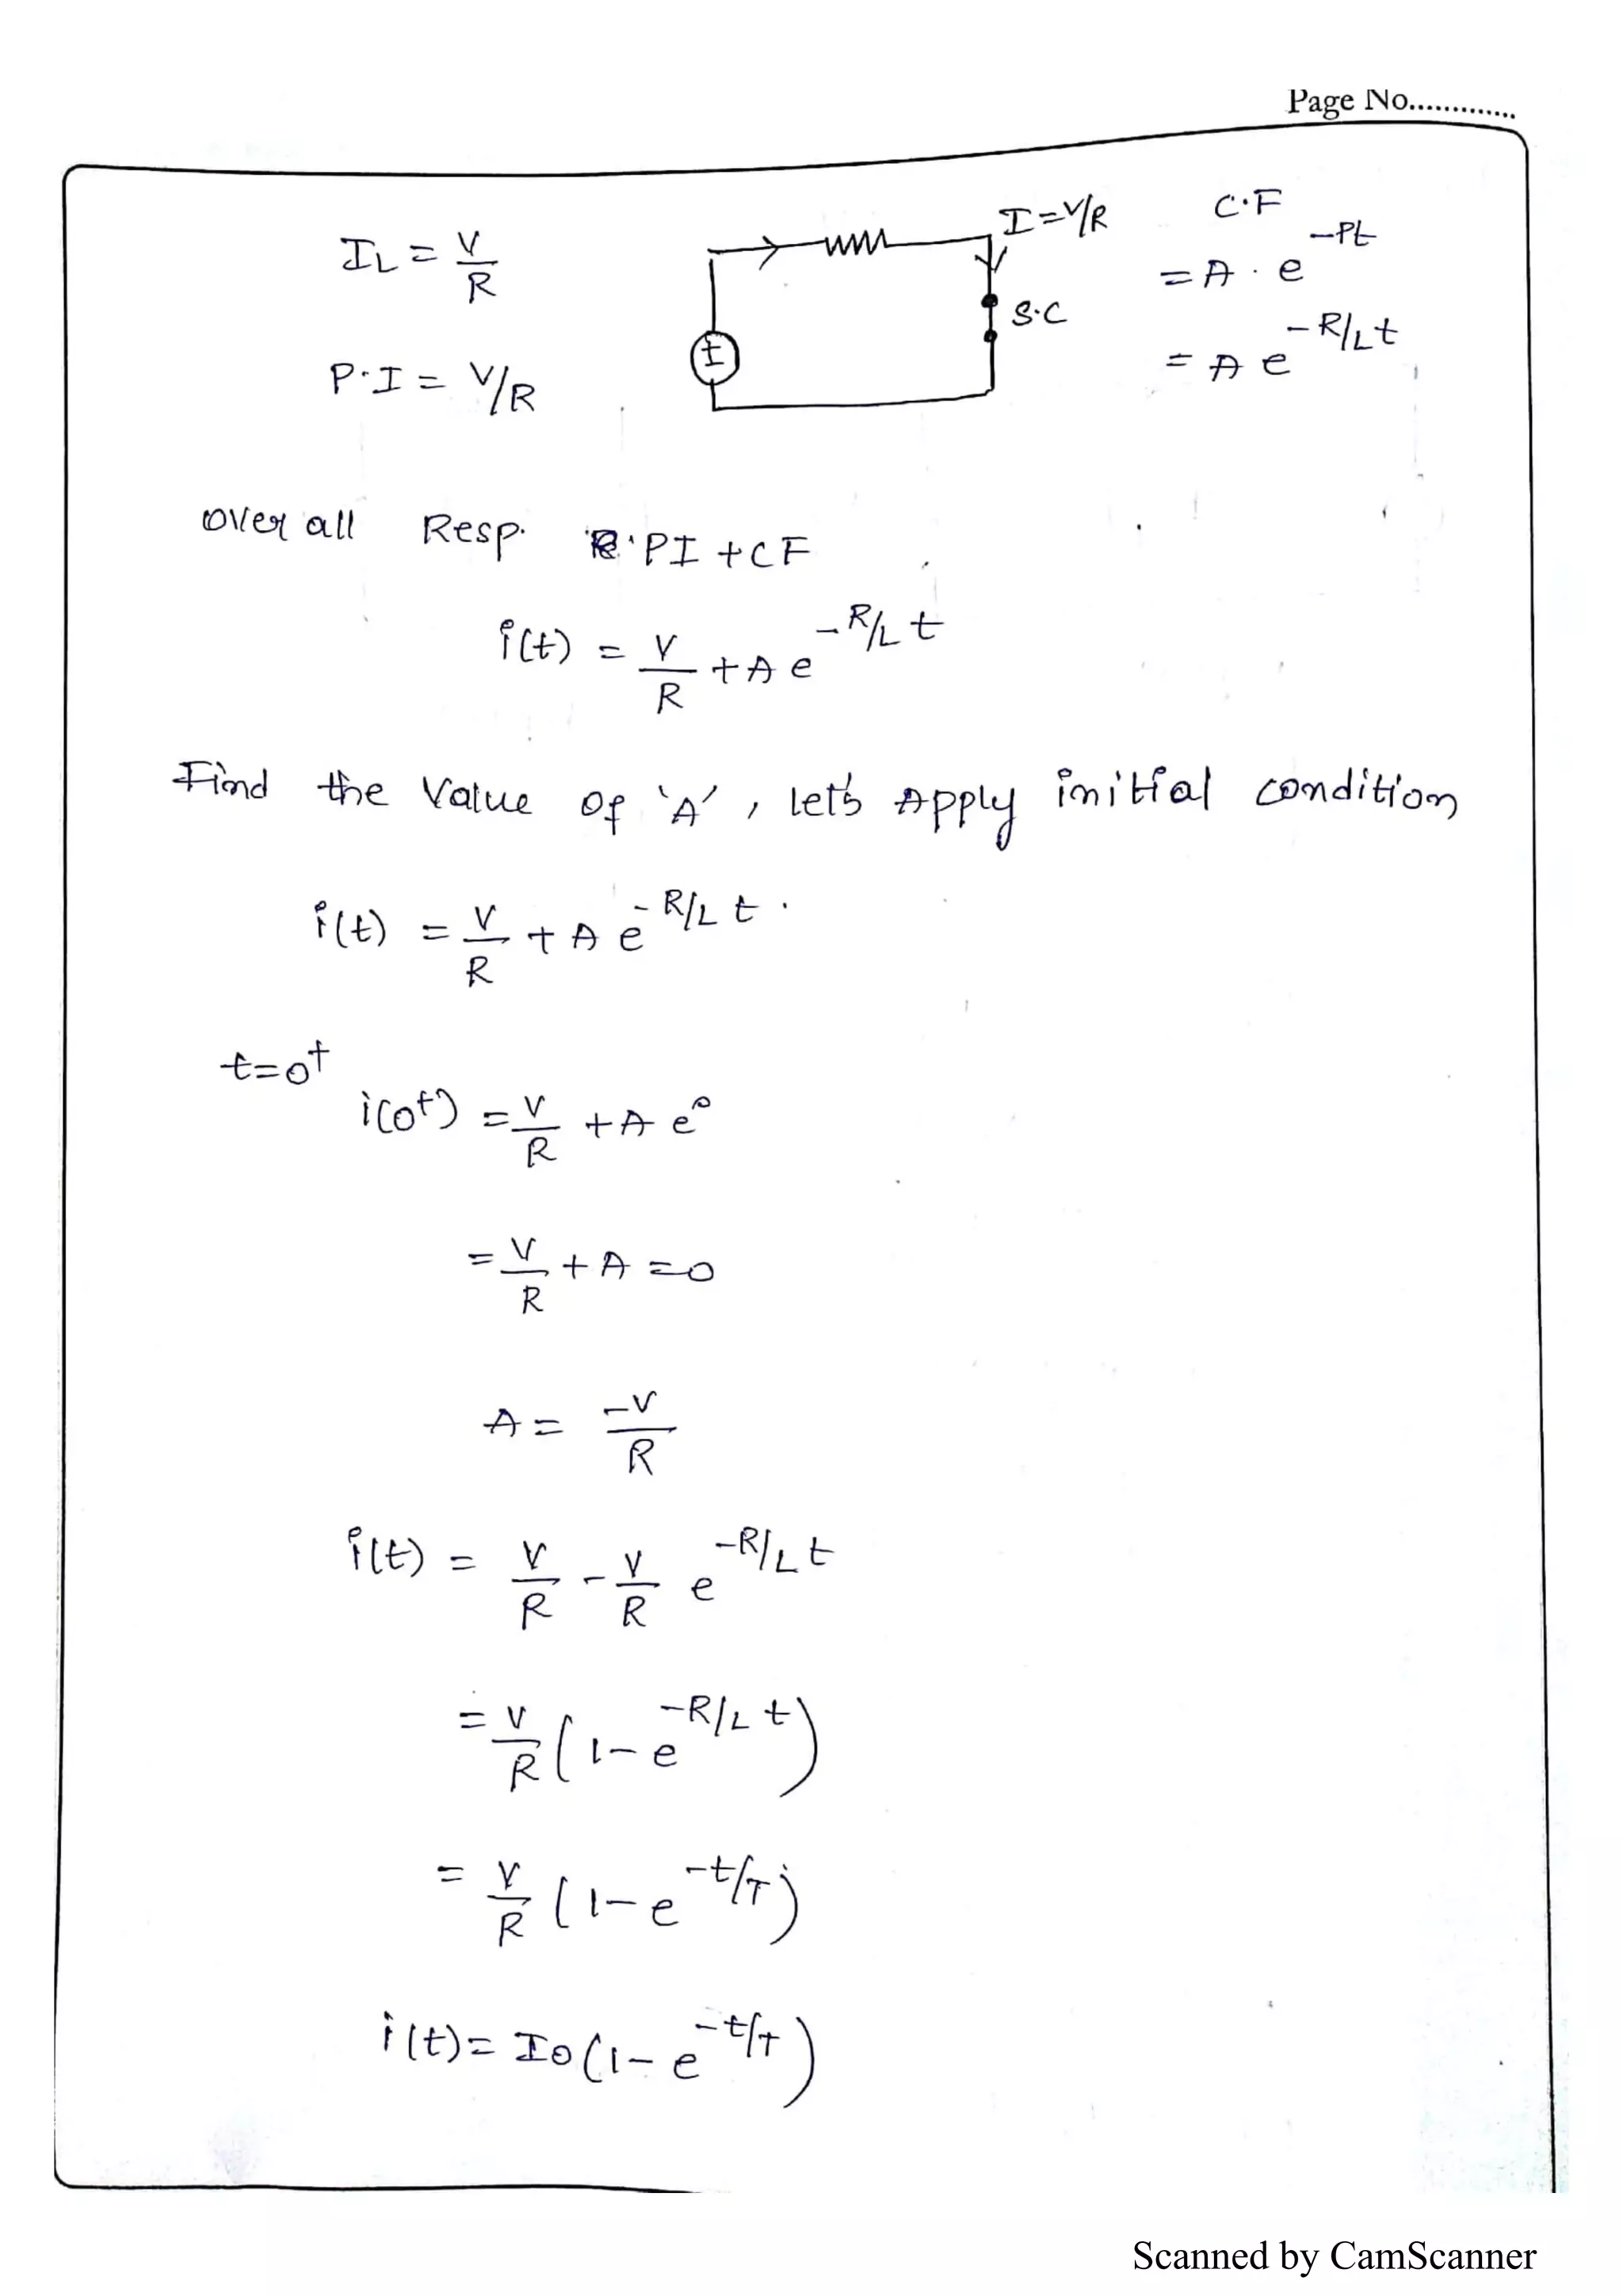 Page No.............
I_L = V/R
P.I = V/R
I = V/R
S.C
C.F
= A . e^{-Pt}
= A e^{-R/L t}
Over all Resp. PI + CF
i(t) = V/R + A e^{-R/L t}
Find the Value of 'A', let's Apply initial condition
i(t) = V/R + A e^{-R/L t}
t=0⁺
i(0⁺) = V/R + A e⁰
= V/R + A = 0
A = -V/R
i(t) = V/R - V/R e^{-R/L t}
= V/R (1 - e^{-R/L t})
= V/R (1 - e^{-t/T})
i(t) = I0 (1 - e^{-t/T})
Scanned by CamScanner